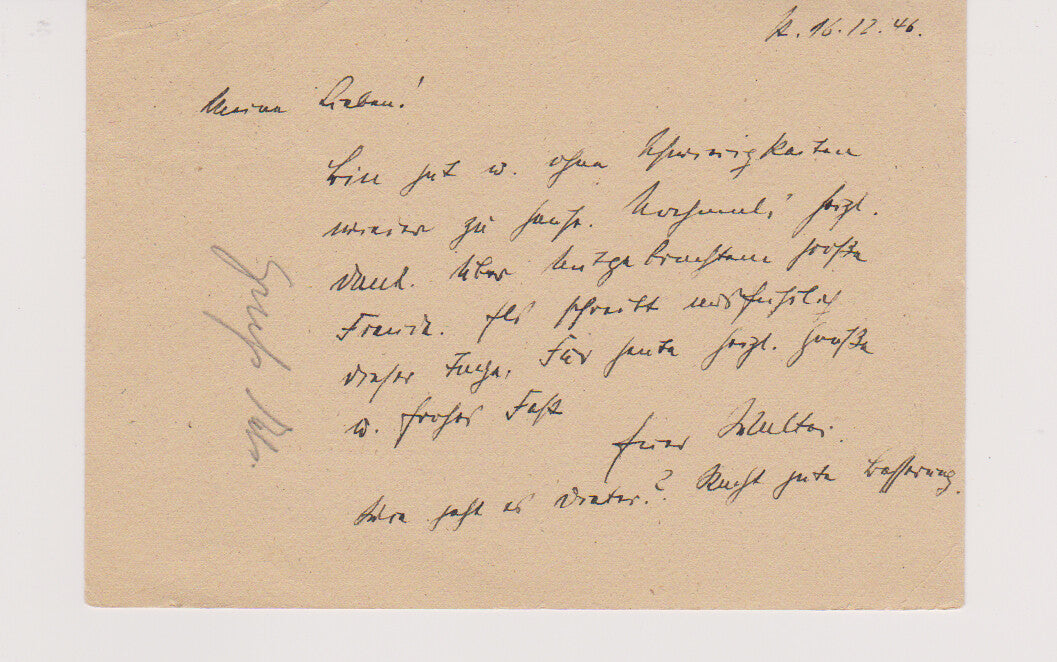 K. 16.12.46.
Meine Lieben!
Bin gut u. ohne Schwierigkeiten
wieder zu Hause. Nochmals herzl.
Dank. Über Mitgebrachtem große
Freude. Ilse schreibt ausführlich
dieser Tage. Für heute herzl. Grüße
u. frohes Fest
Euer Walter.
Wie geht es Dieter? Recht gute Besserung.
Gruß